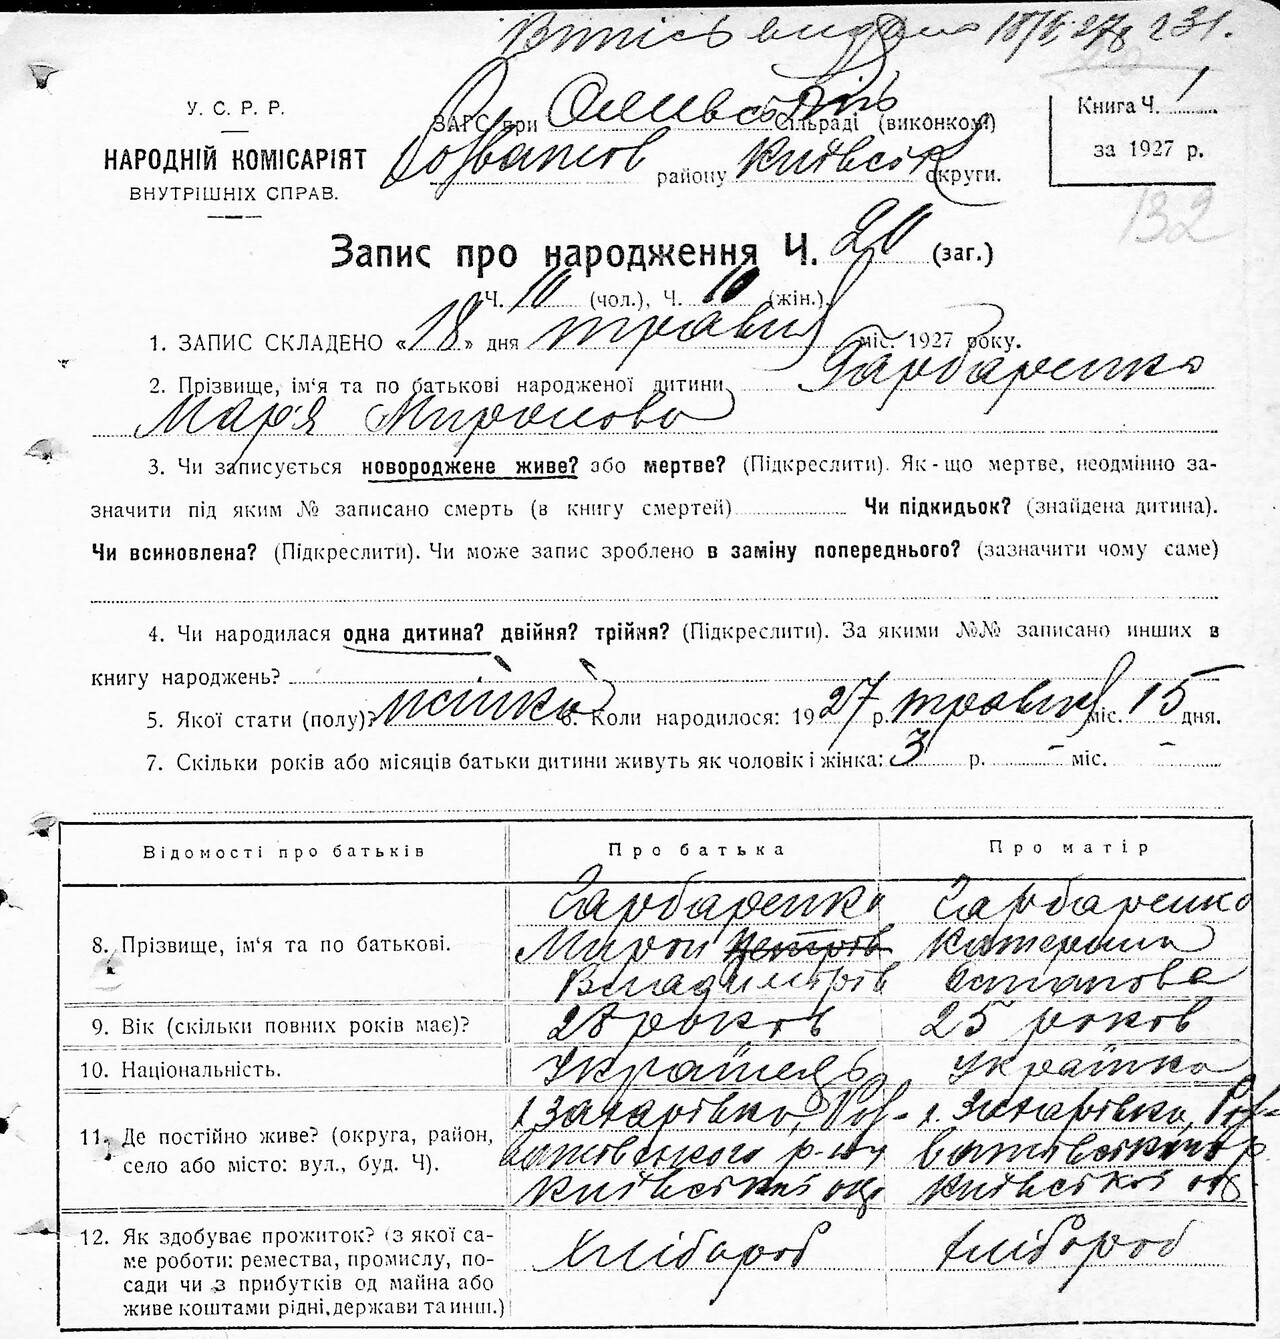 Витісь видано 18/V-27р 231.
У. С. Р. Р.
НАРОДНІЙ КОМІСАРІЯТ
ВНУТРІШНІХ СПРАВ.
ЗАГС при Оливській Сільраді (виконкомі)
Розважов району Київськ округи.
Книга Ч. 1
за 1927 р.
132
Запис про народження Ч. 20 (заг.)
Ч. 10 (чол.), Ч. 10 (жін.)
1. ЗАПИС СКЛАДЕНО «18» дня травня міс. 1927 року.
2. Прізвище, ім‘я та по батькові народженої дитини Гарбаренко
Мар'я Миронова
3. Чи записується новороджене живе? або мертве? (Підкреслити). Як-що мертве, неодмінно за-
значити під яким № записано смерть (в книгу смертей) Чи підкидьок? (знайдена дитина).
Чи всиновлена? (Підкреслити). Чи може запис зроблено в заміну попереднього? (зазначити чому саме)
4. Чи народилася одна дитина? двійня? трійня? (Підкреслити). За якими №№ записано инших в
книгу народжень?
5. Якої стати (полу)? жіноча 6. Коли народилося: 1927 р. травня міс. 15 дня.
7. Скільки років або місяців батьки дитини живуть як чоловік і жінка: 3 р. - міс. -
Відомості про батьків Про батька Про матір
8. Прізвище, ім‘я та по батькові.
Гарбаренко Гарбаренко
Мирон Петров Катерина
Владиміров
9. Вік (скільки повних років має)? 28 роков 25 роков
10. Національність. Українець Українка
11. Де постійно живе? (округа, район,
село або місто: вул., буд. Ч).
с. Захарівка, Роз- с. Захарівка, Роз-
важівського р-ну важівського р.
Київської окр Київської окр
12. Як здобуває прожиток? (з якої са-
ме роботи: ремества, промислу, по-
сади чи з прибутків од майна або
живе коштами рідні, держави та инш.)
Хлібороб Хлібороб